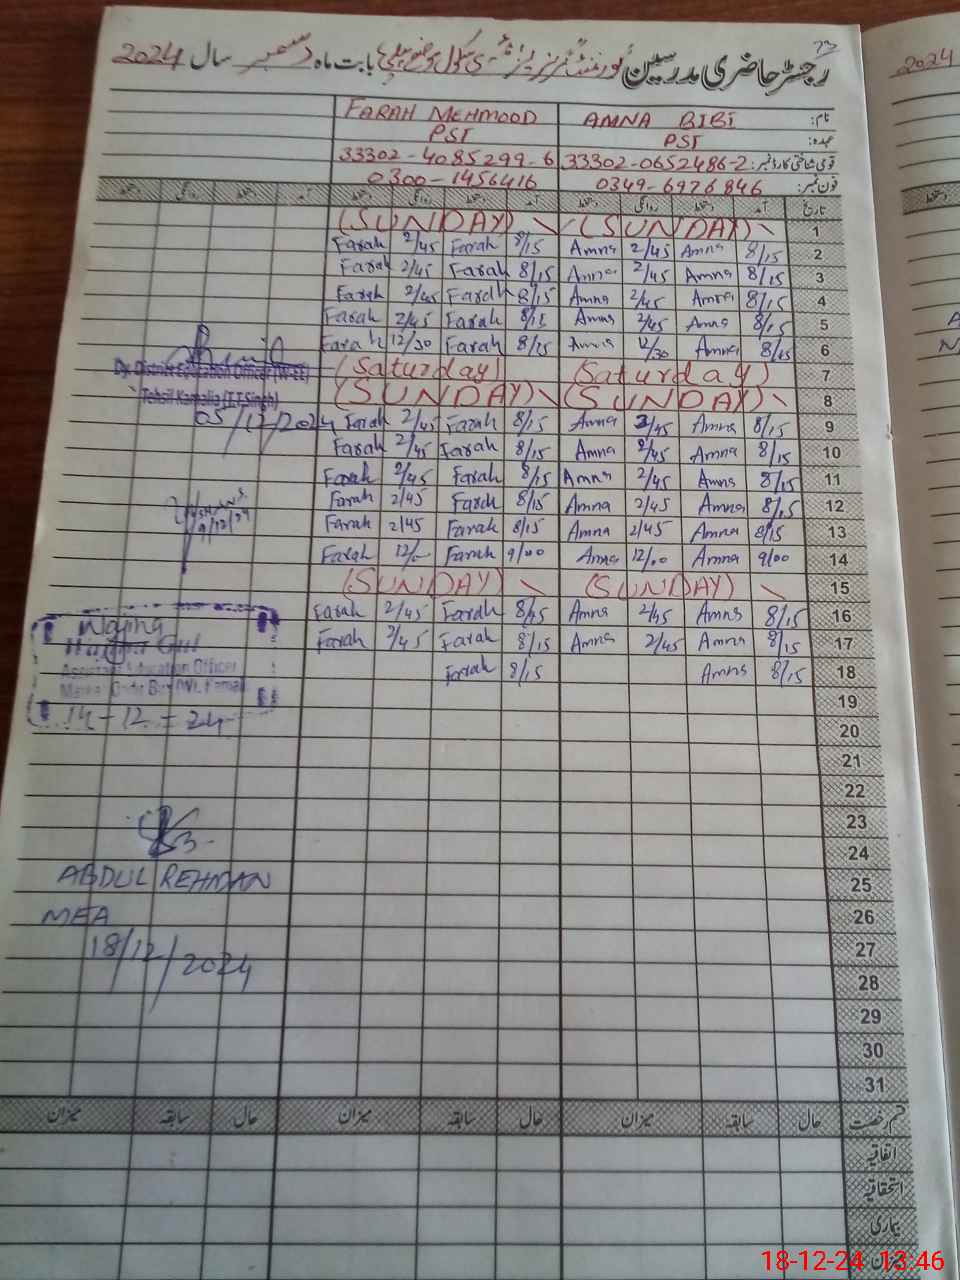 رجسٹر حاضری مدرسین گورنمنٹ گرلز پرائمری سکول موضع بابت ماہ دسمبر سال 2024
2024
نام: AMNA BIBI FARAH MEHMOOD
عہدہ: PST PST
قومی شناختی کارڈ نمبر: 33302-0652486-2 33302-4085299-6
فون نمبر: 0349-6976846 0300-1456416
تاریخ آمد دستخط روانگی دستخط آمد دستخط روانگی دستخط آمد دستخط روانگی دستخط
1 (SUNDAY) (SUNDAY)
2 8/15 Amna 2/45 Amna 8/15 Farah 2/45 Farah
3 8/15 Amna 2/45 Amna 8/15 Farah 2/45 Farah
4 8/15 Amna 2/45 Amna 8/15 Farah 2/45 Farah
5 8/15 Amna 2/45 Amna 8/15 Farah 2/45 Farah
6 8/15 Amna 12/30 Amna 8/15 Farah 12/30 Farah
7 (Saturday) (Saturday)
8 (SUNDAY) (SUNDAY)
9 8/15 Amna 2/45 Amna 8/15 Farah 2/45 Farah
10 8/15 Amna 2/45 Amna 8/15 Farah 2/45 Farah
11 8/15 Amna 2/45 Amna 8/15 Farah 2/45 Farah
12 8/15 Amna 2/45 Amna 8/15 Farah 2/45 Farah
13 8/15 Amna 2/45 Amna 8/15 Farah 2/45 Farah
14 9/00 Amna 12/00 Amna 9/00 Farah 12/- Farah
15 (SUNDAY) (SUNDAY)
16 8/15 Amna 2/45 Amna 8/15 Farah 2/45 Farah
17 8/15 Amna 2/45 Amna 8/15 Farah 2/45 Farah
18 8/15 Amna 8/15 Farah
19
20
21
22
23
24
25
26
27
28
29
30
31
Dy. District Education Officer (W-EE)
Tehsil Kamalia (T.T.Singh)
05/12/2024
9/12/24
Wajiha
Wajiha Gul
Assistant Education Officer
14-12-24
ABDUL REHMAN
MEA
18/12/2024
قسم رخصت حال سابقہ میزان حال سابقہ میزان حال سابقہ میزان
اتفاقیہ
استحقاقیہ
بیماری
میزان
18-12-24 13:46